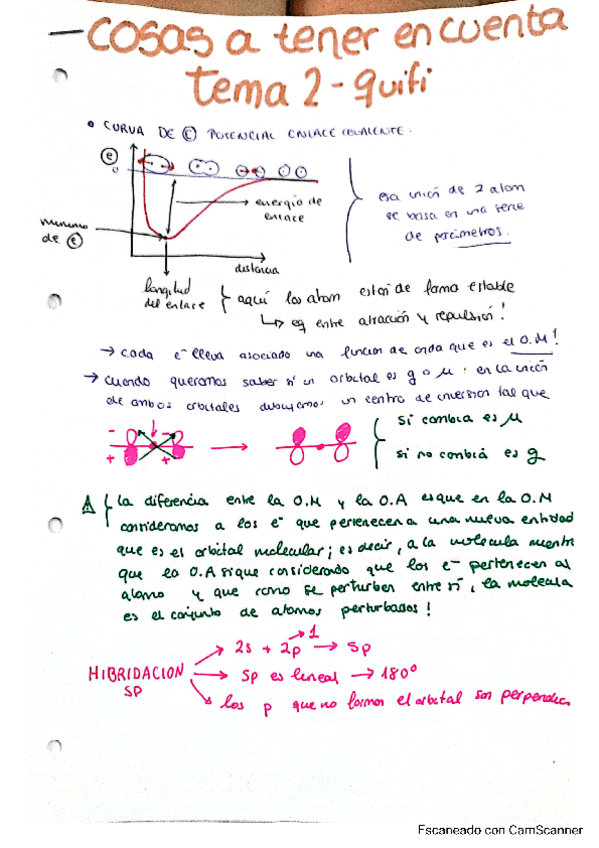 - COSAS a tener en cuenta
tema 2 - quifi
• CURVA DE Ⓔ POTENCIAL ENLACE COVALENTE.
ⓔ
0
energía de
enlace
esa unión de 2 atom
se basa en una serie
de parámetros.
mínimo
de ⓔ
distancia
longitud
del enlace
aquí los atom están de forma estable
↳ eq entre atracción y repulsión!
→ cada e⁻ lleva asociado una función de onda que es el O.M!
→ cuando queramos saber si un orbital es g o μ: en la unión
de ambos orbitales dibujamos un centro de inversión tal que
- -
+ +
si cambia es μ
si no cambia es g
la diferencia entre la O.M y la O.A es que en la O.M
consideramos a los e⁻ que pertenecen a una nueva entidad
que es el orbital molecular; es decir, a la molecula mientr
que la O.A sigue considerando que los e⁻ pertenecen al
atomo y que como se perturben entre sí, la molecula
es el conjunto de atomos perturbados!
1
→ 2s + 2p → sp
HIBRIDACION → sp es lineal → 180º
SP
los p que no forman el orbital son perpendic
Escaneado con CamScanner